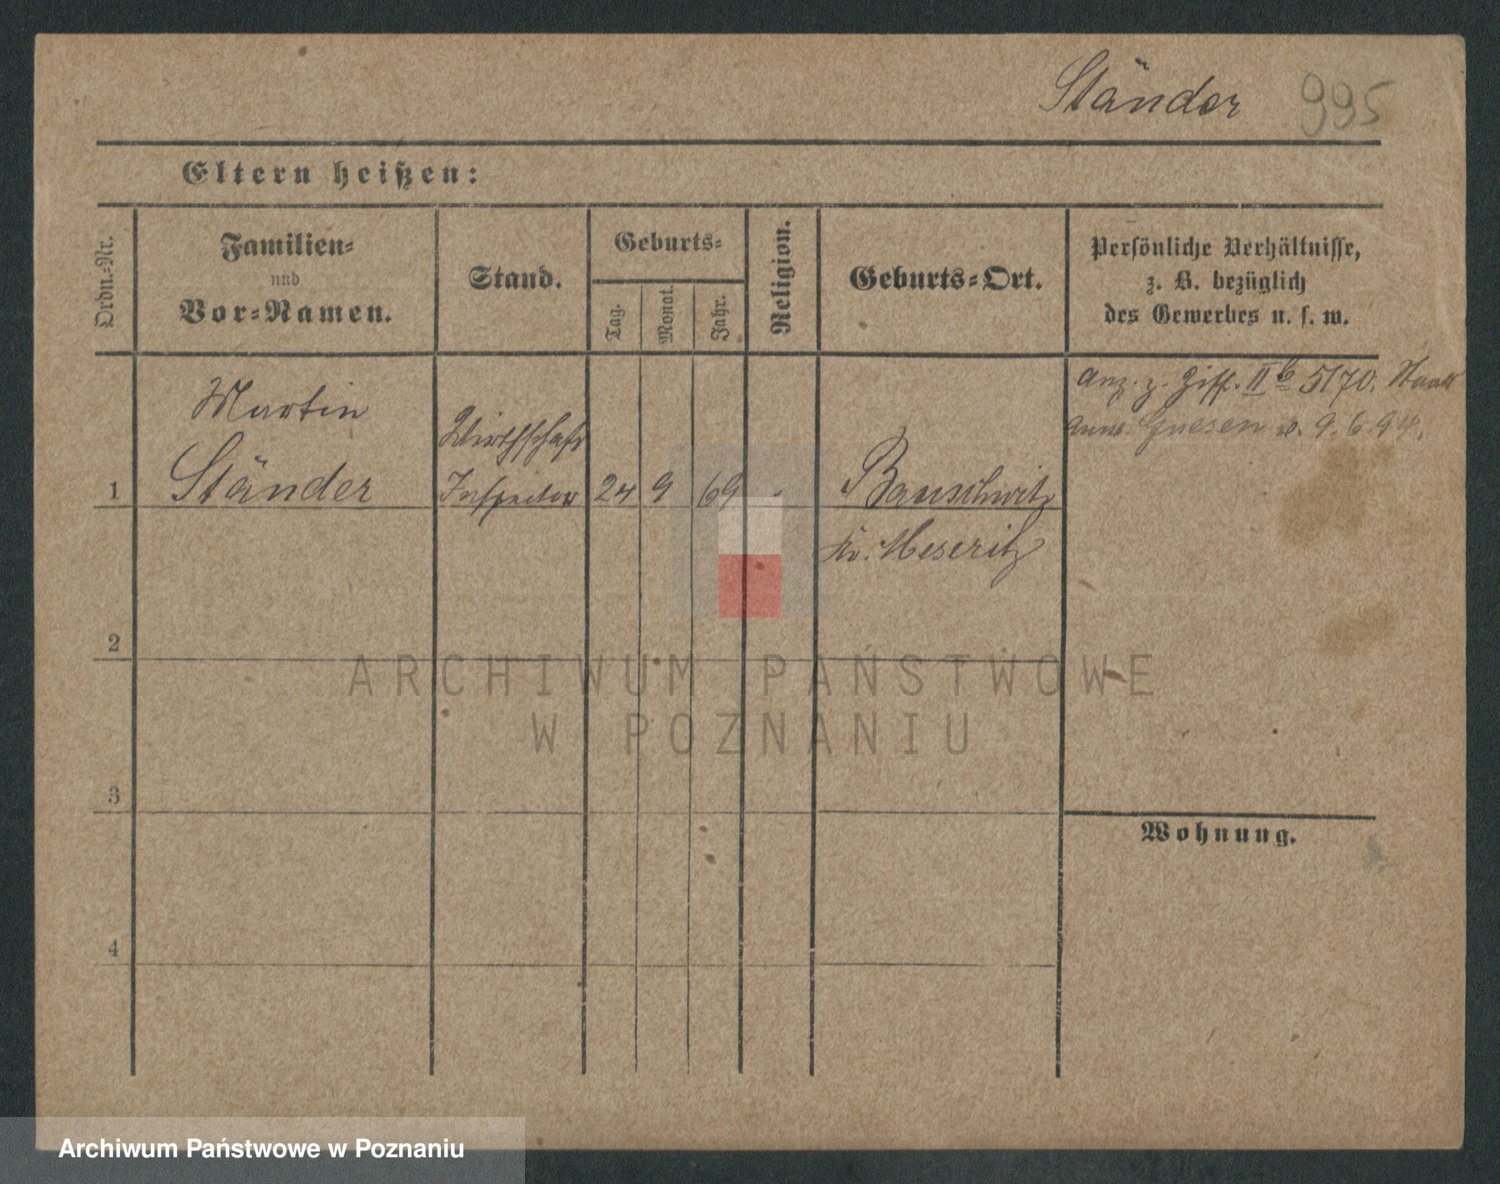 Ständer 995
Eltern heißen:
Ordn.-Nr.
Familien-
und
Vor-Namen.
Stand.
Geburts-
Tag.
Monat.
Jahr.
Religion.
Geburts-Ort.
Persönliche Verhältnisse,
z. B. bezüglich
des Gewerbes u. s. w.
Martin
Ständer
Wirthschafts
Inspector
1
24 9 69
Bauschwitz
Kr. Meseritz
Anz. z. IIb 5170.
Gnesen v. 9.6.94.
2
3
4
Wohnung.
ARCHIWUM PAŃSTWOWE
W POZNANIU
Archiwum Państwowe w Poznaniu